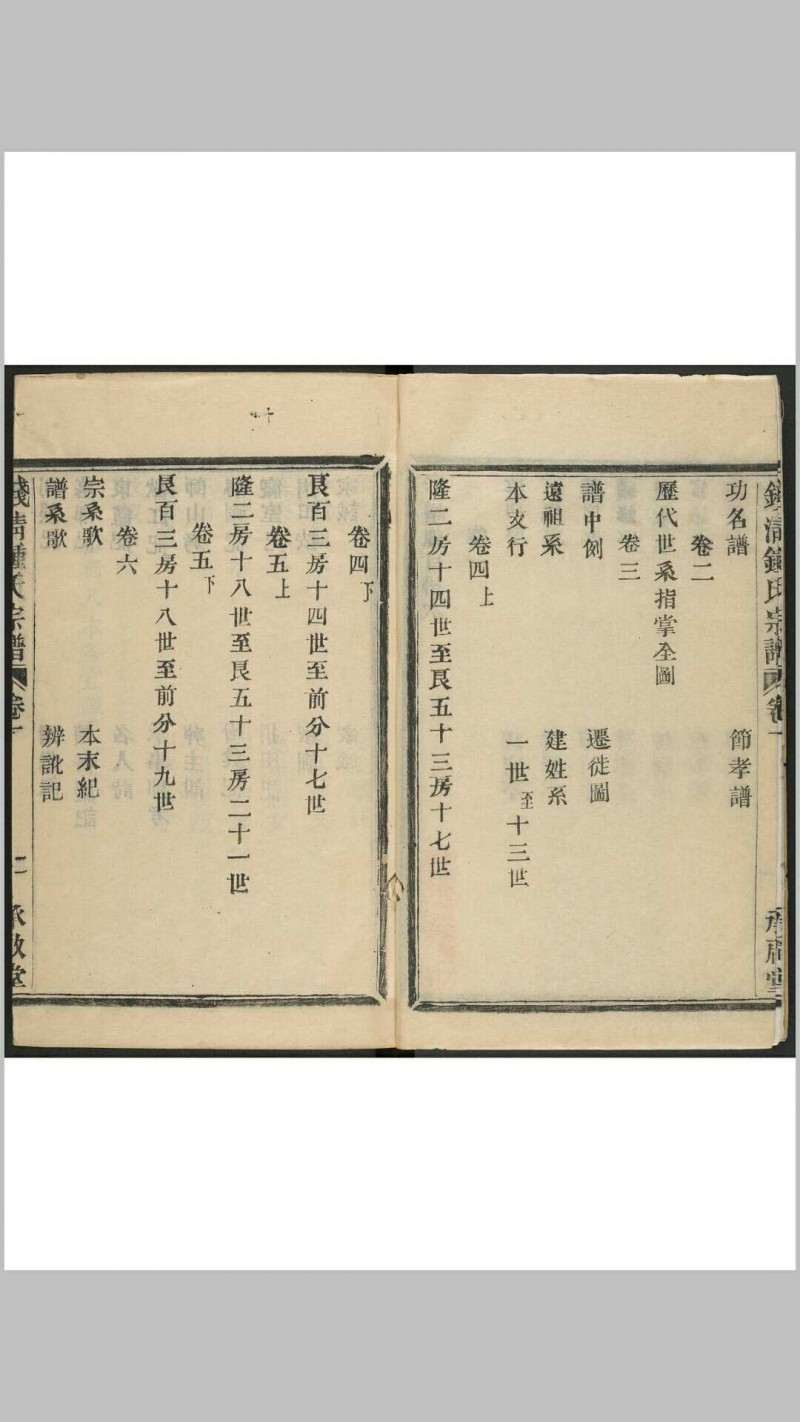 功名譜 節孝譜
卷二
歷代世系指掌全圖
卷三
譜中例 遷徙圖
遠祖系 建姓系
本支行 一世至十三世
卷四上
隆二房十四世至艮五十三房十七世
卷四下
艮百三房十四世至前分十七世
卷五上
隆二房十八世至艮五十三房二十一世
卷五下
艮百三房十八世至前分十九世
卷六
宗系歌 本末紀
譜系歌 辨訛記
錢清鍾氏宗譜 卷一 二 承啟堂